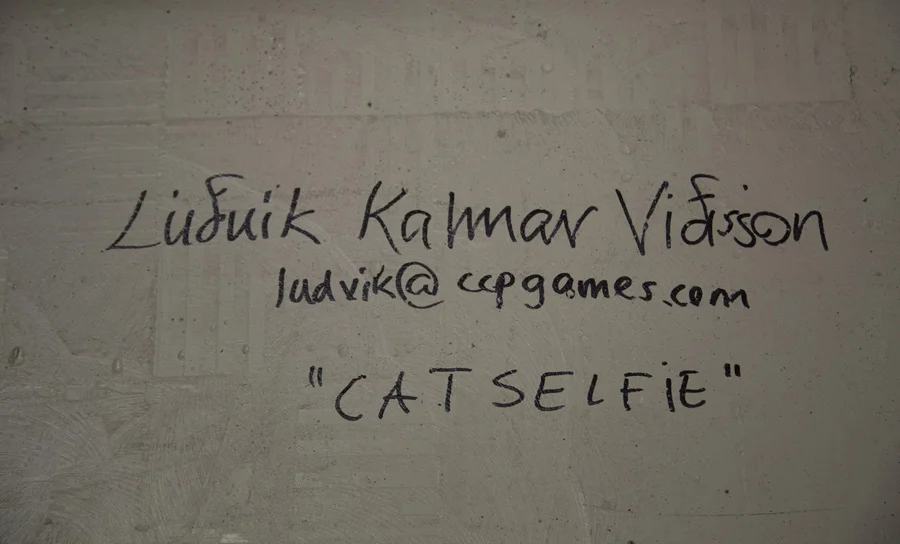 Luðvik Kalmar Viðisson
ludvik@ccpgames.com
"CAT SELFiE"